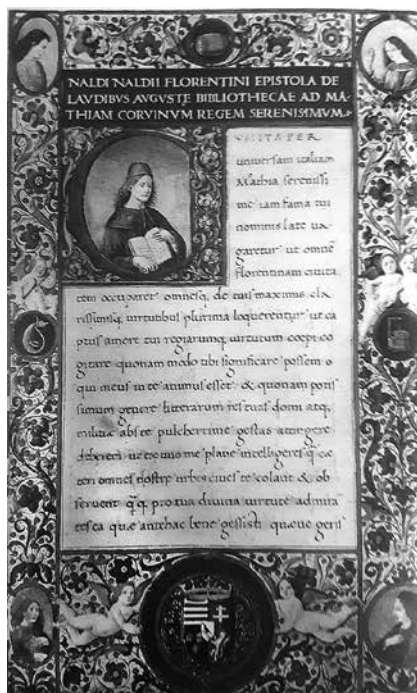 NALDI NALDII FLORENTINI EPISTOLA DE
LAVDIBVS AVGVSTE BIBLIOTHECAE AD MA-
THIAM CORVINVM REGEM SERENISSIMVM.
VITA PER
universam italiam
Mathia serenissi
me iam fama tui
nominis late va
garetur ut omnē
florentinam civita
tem occuparet omnesq; de tuis maximis cla
rissimisq; virtutibus plurima loquerentur ut ca
ptus amore tui regiarumq; virtutum coepi co
gitare quonam modo tibi significare possem
qui meus in te animus esset & quonam potis
simum genere litterarum res tuas domi atq;
militiae abs te pulcherrime gestas attingere
deberem ut ex uno me plane intelligeres
teri omnes nostre urbis cives te colant & ob
servent pro tua divina virtute admira
tes ea quae antehac bene gessisti quaeve geris